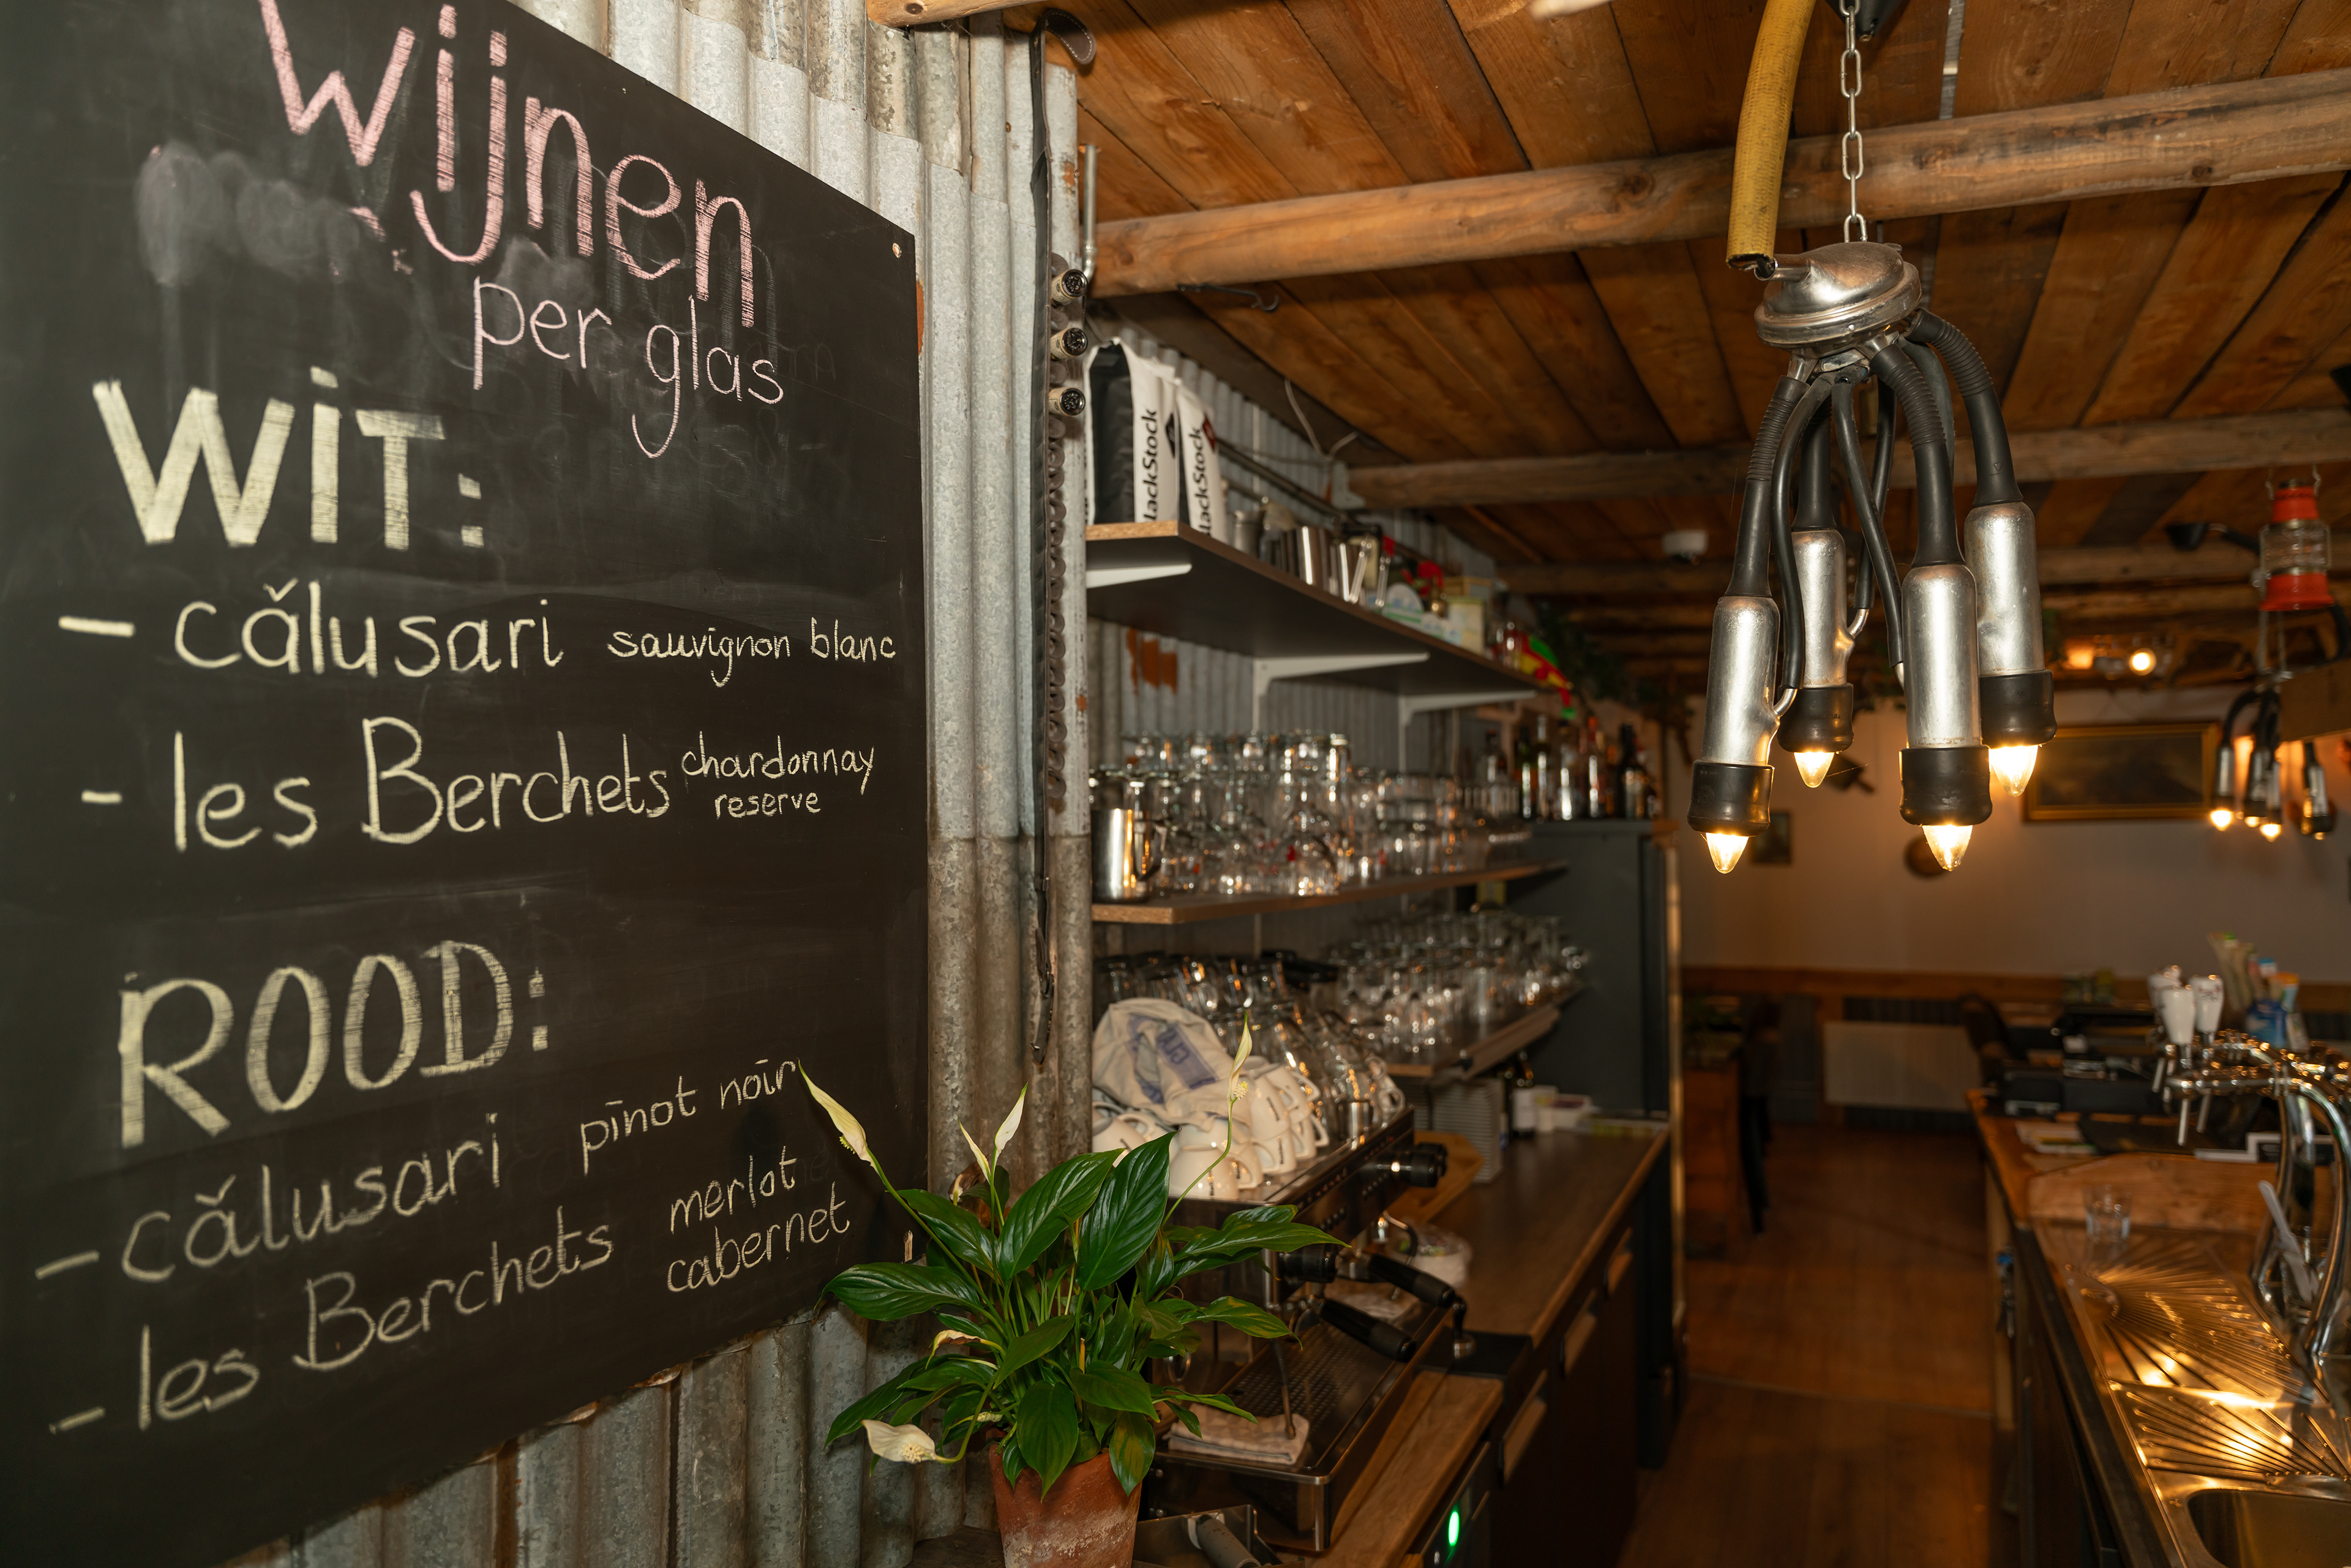 wijnen
per glas
WIT:
- călusari sauvignon blanc
- les Berchets chardonnay
reserve
ROOD:
- călusari pinot noir
- les Berchets merlot
cabernet
lackStock
lackStock